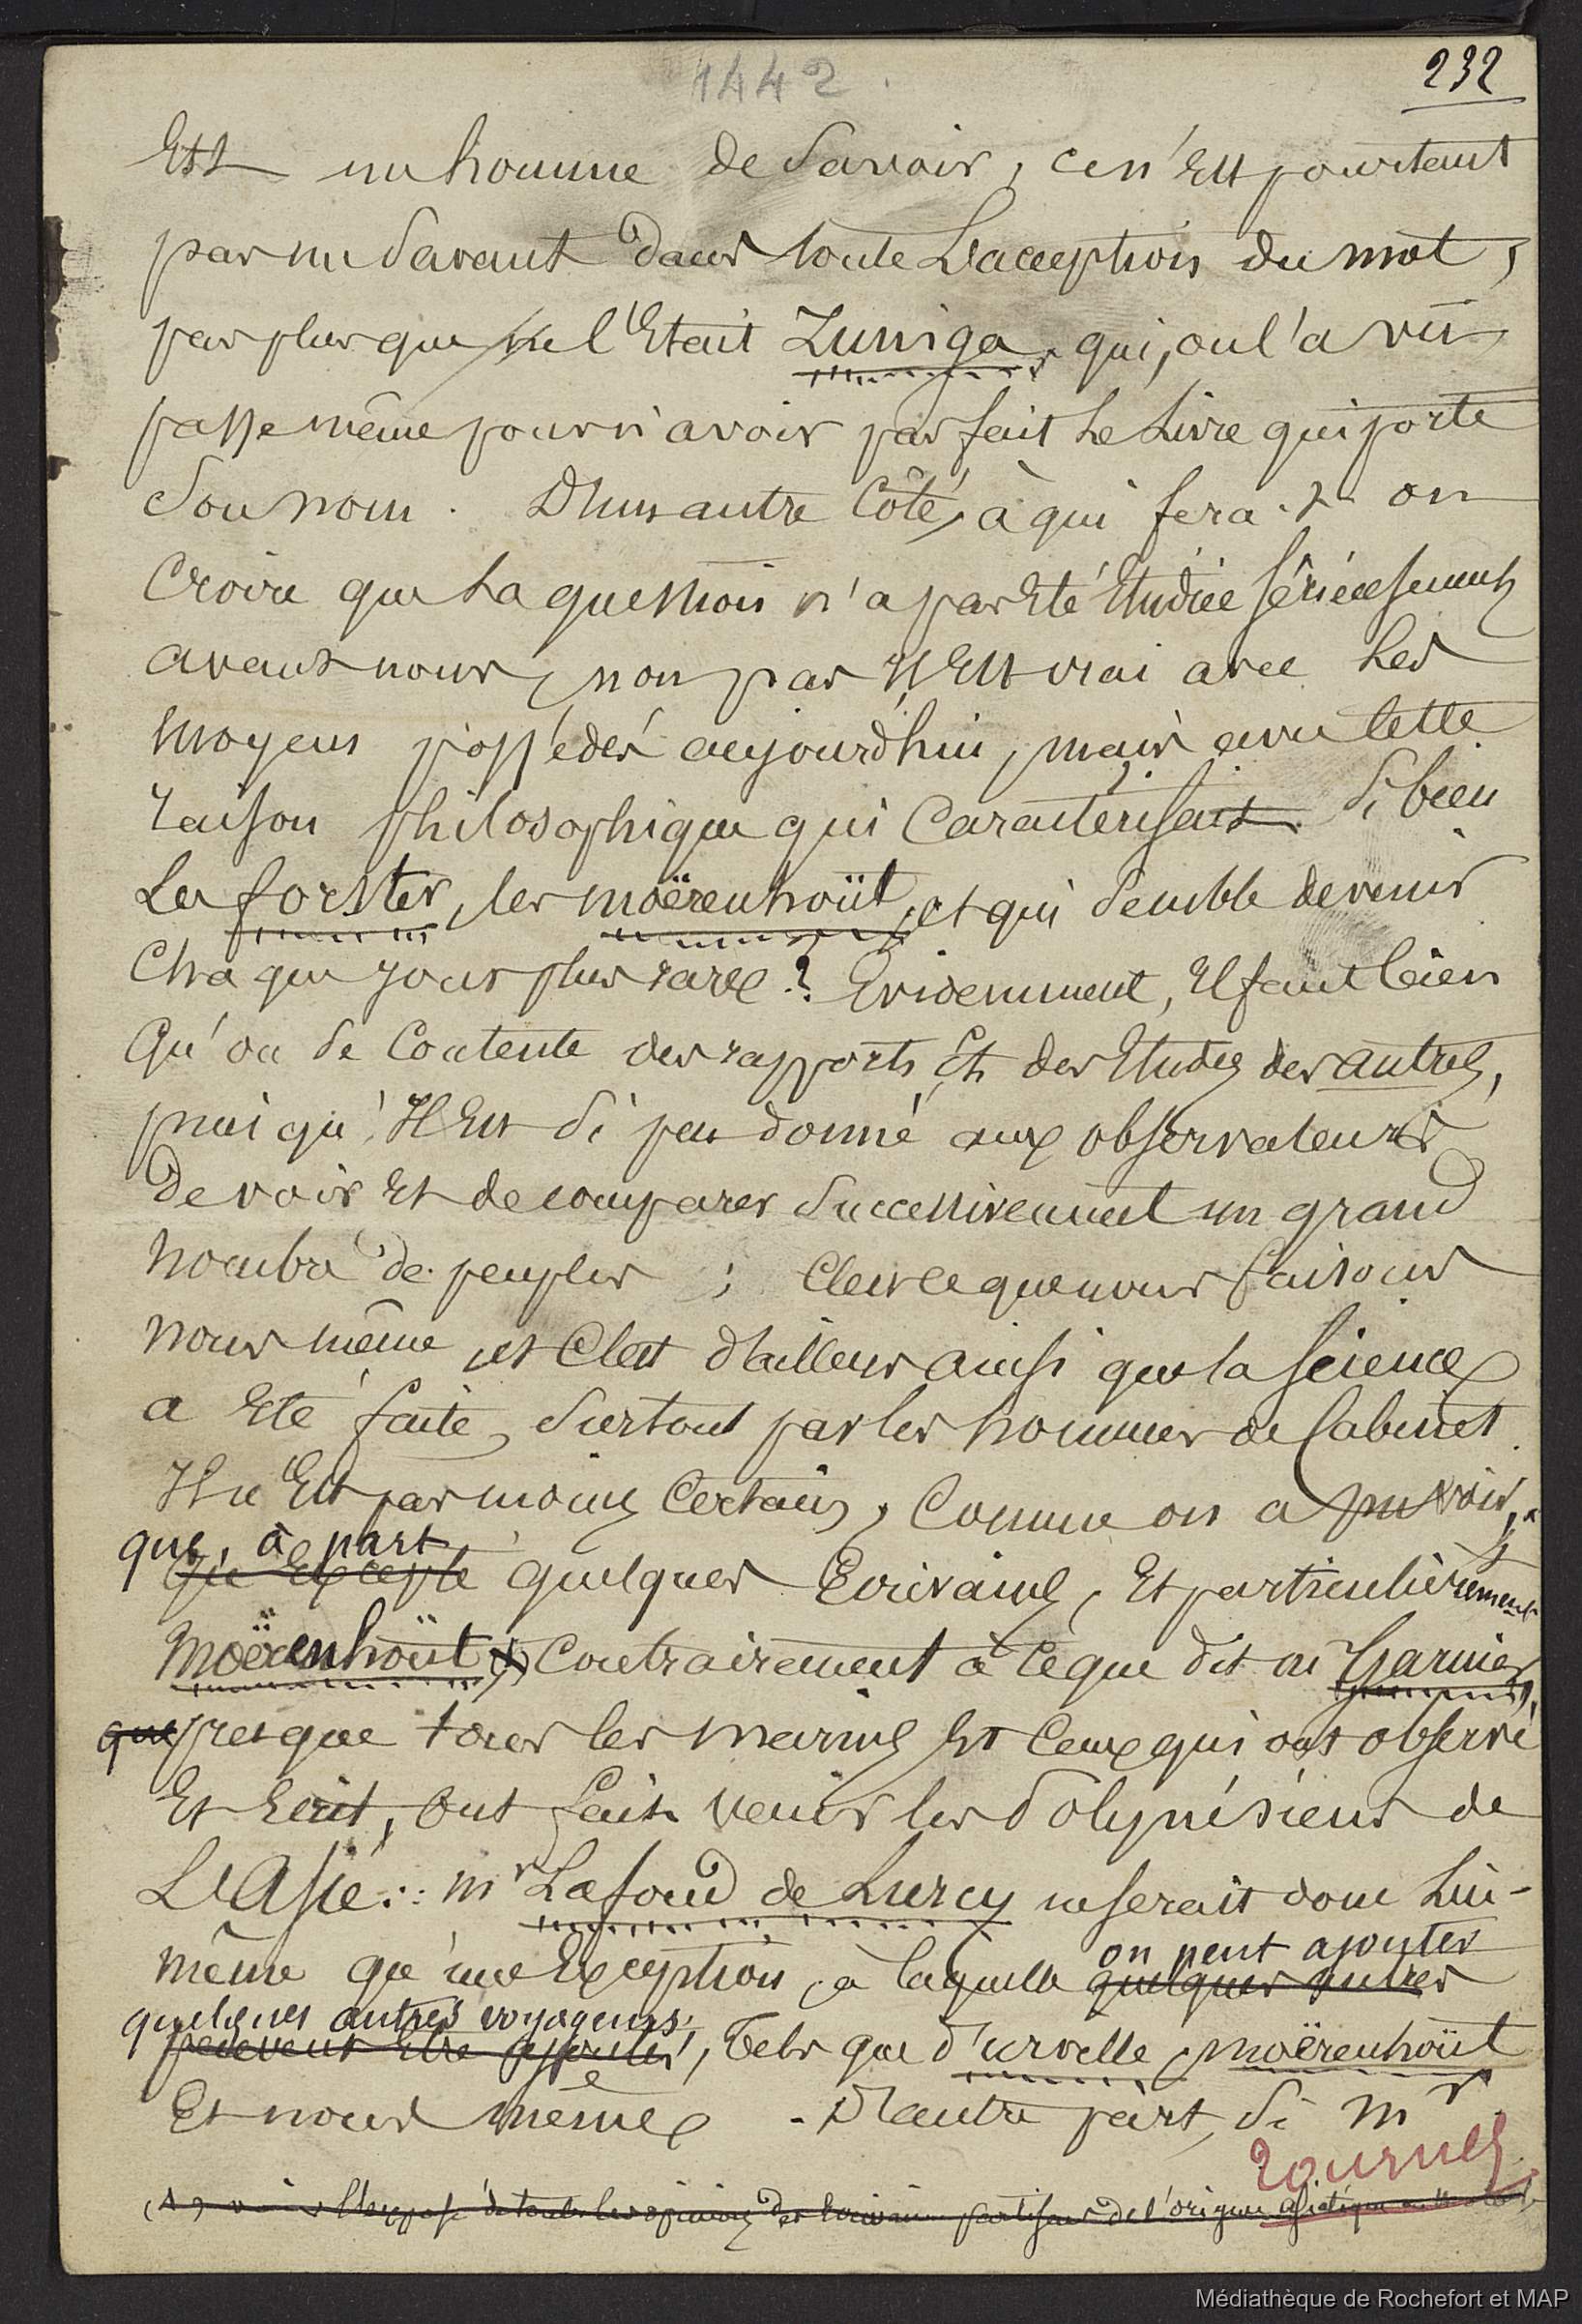 1442.
232
Est un homme de Savoir, ce n'Est pourtant
pas un Savant dans toute L'acception du mot,
pas plus que ne l'Etait Zuniga qui, on l'a vu
passe même pour n'avoir pas fait Le Livre qui porte
Son nom. D'un autre Côté, à qui fera-t-on
Croire que La question n'a pas Eté Etudiée sérieusement
avant nous, non pas Il Est vrai avec Les
moyens possédés aujourd'hui, mais avec cette
raison philosophique qui Caractérisait Si bien
Les forster, les moërenhoüt, et qui Semble devenir
Chaque jour plus rare ? Evidemment, Il faut bien
Qu'on Se Contente des rapports Et des Etudes des autres,
puisqu'Il Est Si peu donné aux observateurs
de voir Et de comparer Successivement un grand
nombre de peuples ; C'est ce que nous faisons
nous même et C'est d'ailleurs ainsi que la Science
a Eté faite, Surtout par les hommes de Cabinet.
Il n'Est pas moins Certain, Comme on a pu voir,
que, à part
qu'Excepté quelques Ecrivains, Et particulièrement
Moërenhoüt Contrairement à ce que dit m Garnier,
que presque tous les marins Et Ceux qui ont observé
Et Ecrit, ont fait venir les Polynésiens de
L'Asie. Mr Lafond de Lurcy ne serait donc Lui-
même qu'une Exception, à laquelle quelques autres
on peut ajouter
quelques autres voyageurs,
peuvent Etre ajoutés, tels que d'urville, moërenhoüt
Et nous même. D'autre part, Si Mr
tournez
(1) voir l'Exposé de toutes les opinions des Ecrivains partisans de l'origine asiatique
Médiathèque de Rochefort et MAP